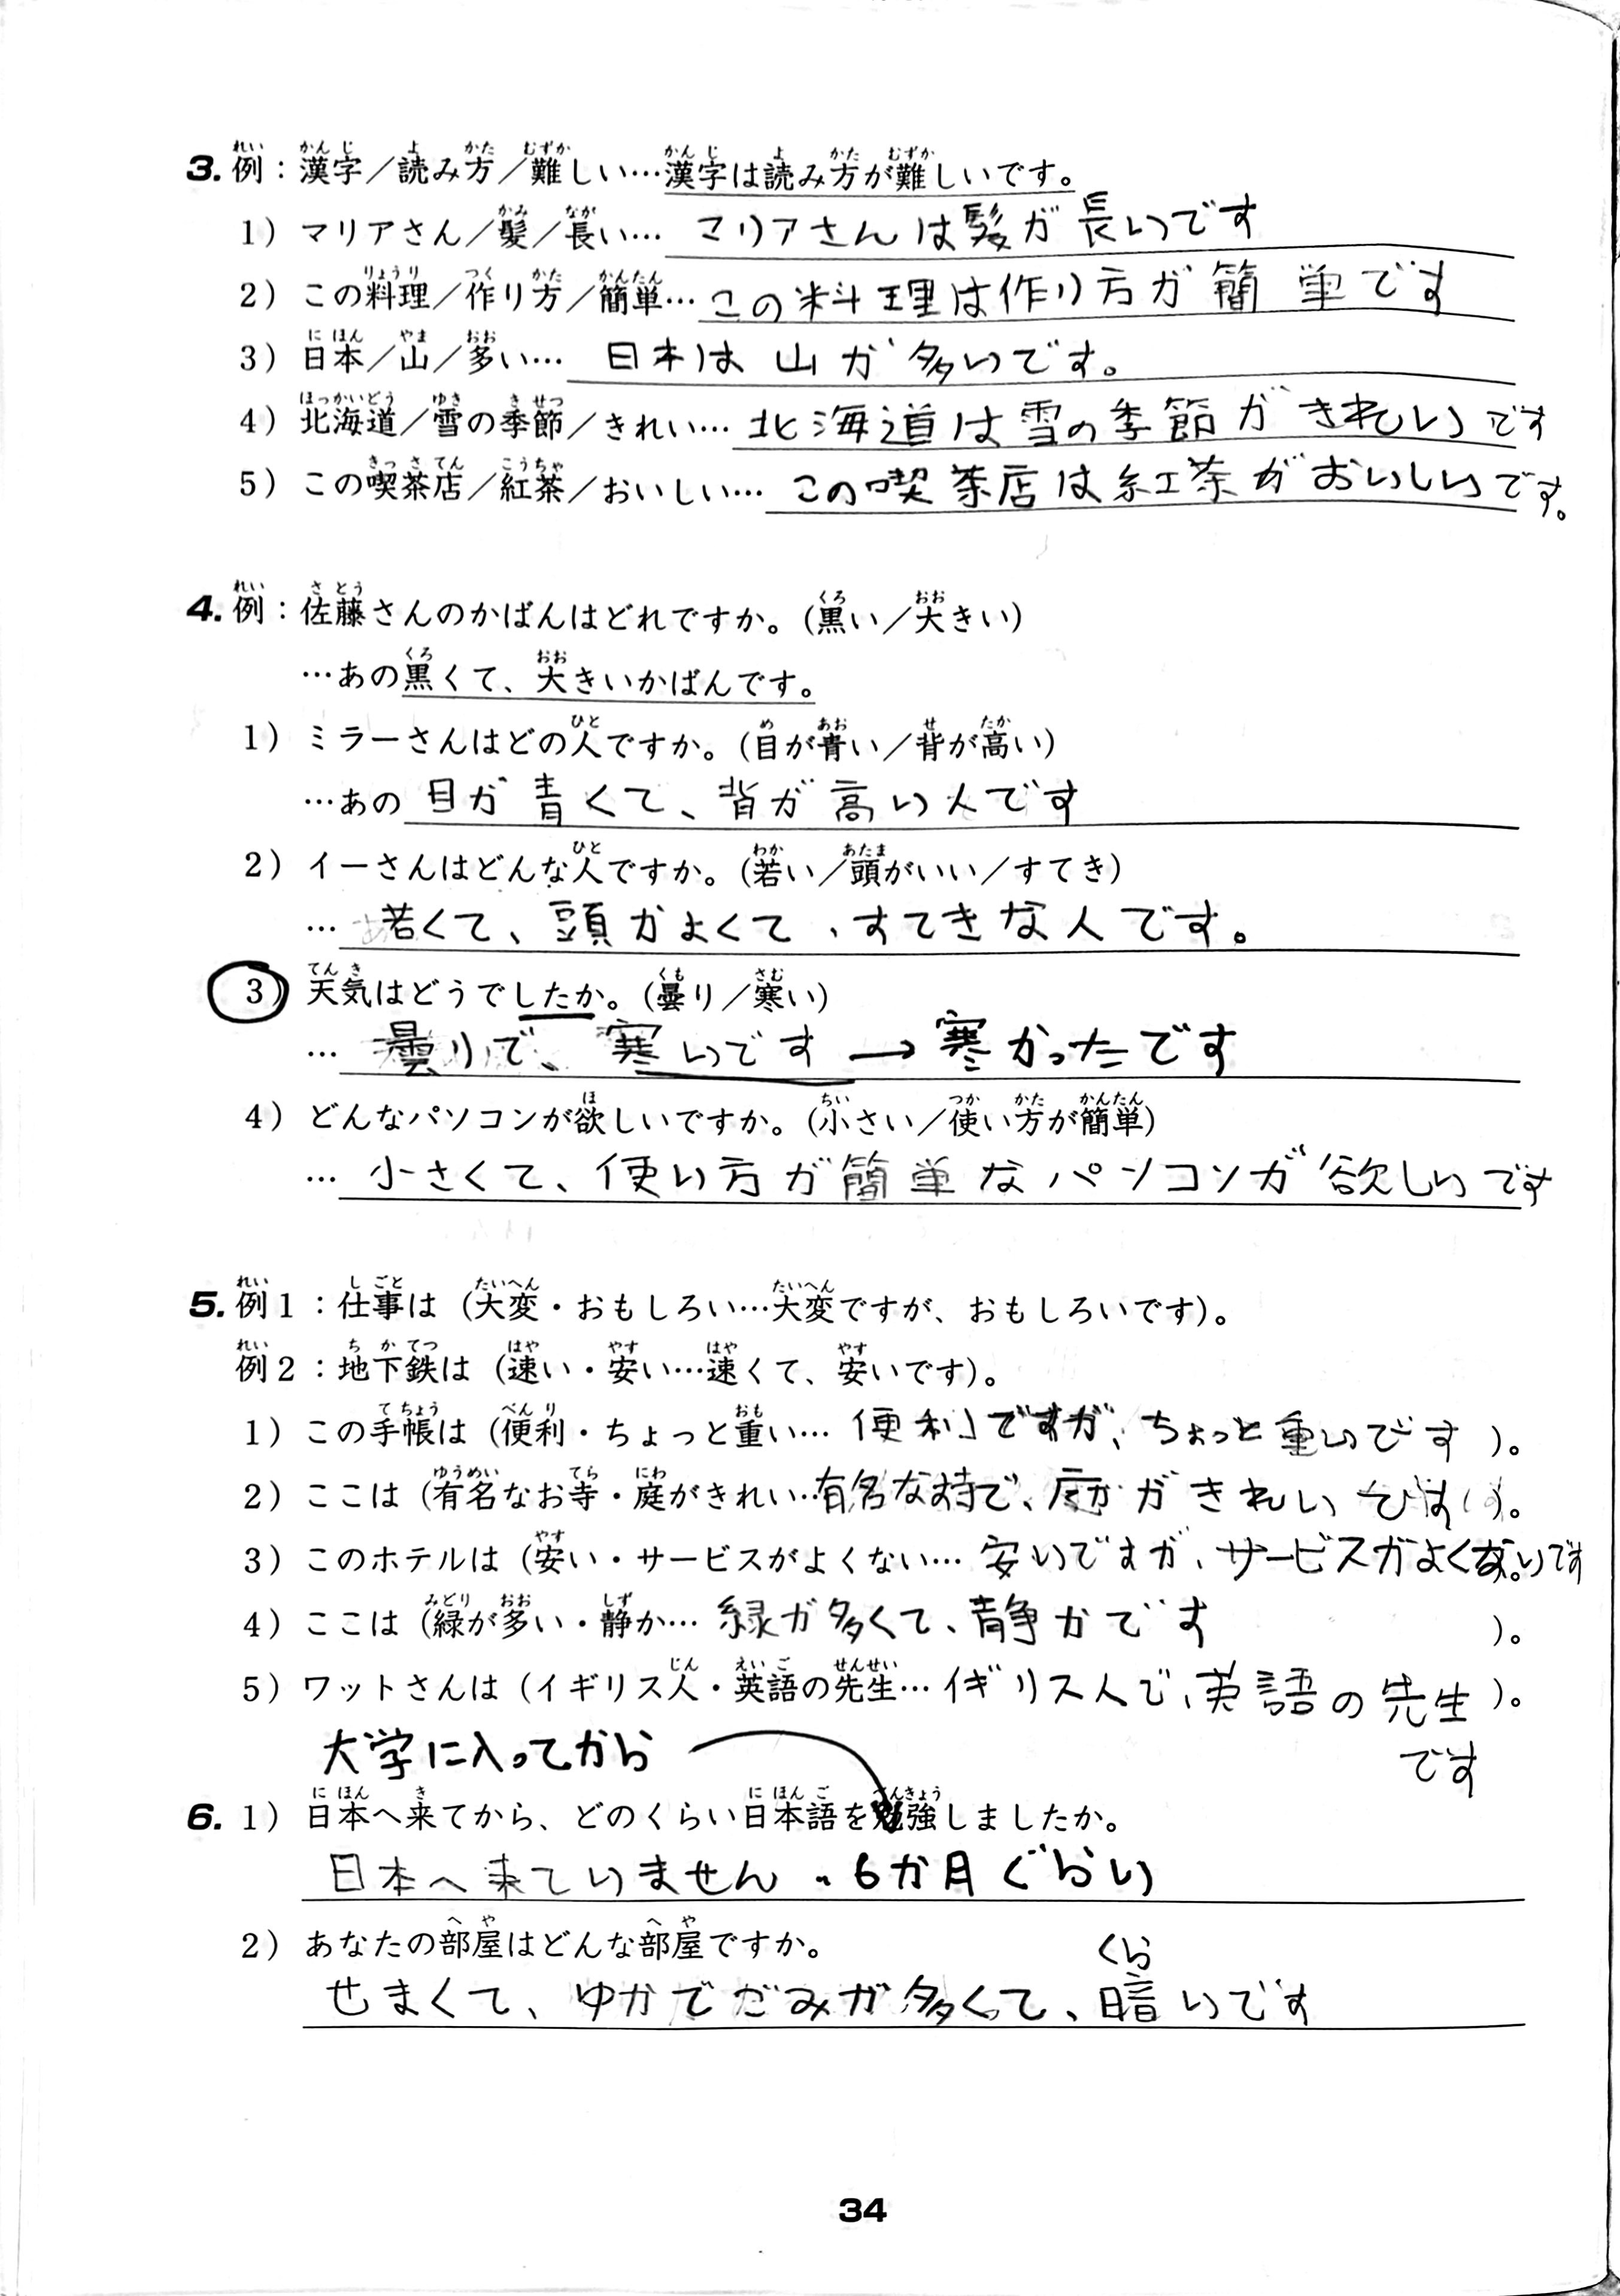 3. 例：漢字／読み方／難しい…漢字は読み方が難しいです。
1) マリアさん／髪／長い… マリアさんは髪が長いです
2) この料理／作り方／簡単… この料理は作り方が簡単です
3) 日本／山／多い… 日本は山が多いです。
4) 北海道／雪の季節／きれい… 北海道は雪の季節がきれいです
5) この喫茶店／紅茶／おいしい… この喫茶店は紅茶がおいしいです。
4. 例：佐藤さんのかばんはどれですか。(黒い／大きい)
…あの黒くて、大きいかばんです。
1) ミラーさんはどの人ですか。(目が青い／背が高い)
…あの 目が青くて、背が高い人です
2) イーさんはどんな人ですか。(若い／頭がいい／すてき)
… 若くて、頭がよくて、すてきな人です。
3) 天気はどうでしたか。(曇り／寒い)
… 曇りで、寒いです → 寒かったです
4) どんなパソコンが欲しいですか。(小さい／使い方が簡単)
… 小さくて、使い方が簡単なパソコンが欲しいです
5. 例1：仕事は (大変・おもしろい…大変ですが、おもしろいです)。
例2：地下鉄は (速い・安い…速くて、安いです)。
1) この手帳は (便利・ちょっと重い… 便利ですが、ちょっと重いです )。
2) ここは (有名なお寺・庭がきれい… 有名なお寺で、庭がきれいです )。
3) このホテルは (安い・サービスがよくない… 安いですが、サービスがよくないです
4) ここは (緑が多い・静か… 緑が多くて、静かです )。
5) ワットさんは (イギリス人・英語の先生… イギリス人で、英語の先生 )。
です
大学に入ってから
6. 1) 日本へ来てから、どのくらい日本語を勉強しましたか。
日本へ来ていません。6か月ぐらい
2) あなたの部屋はどんな部屋ですか。
くら
せまくて、ゆかでごみが多くて、暗いです
34